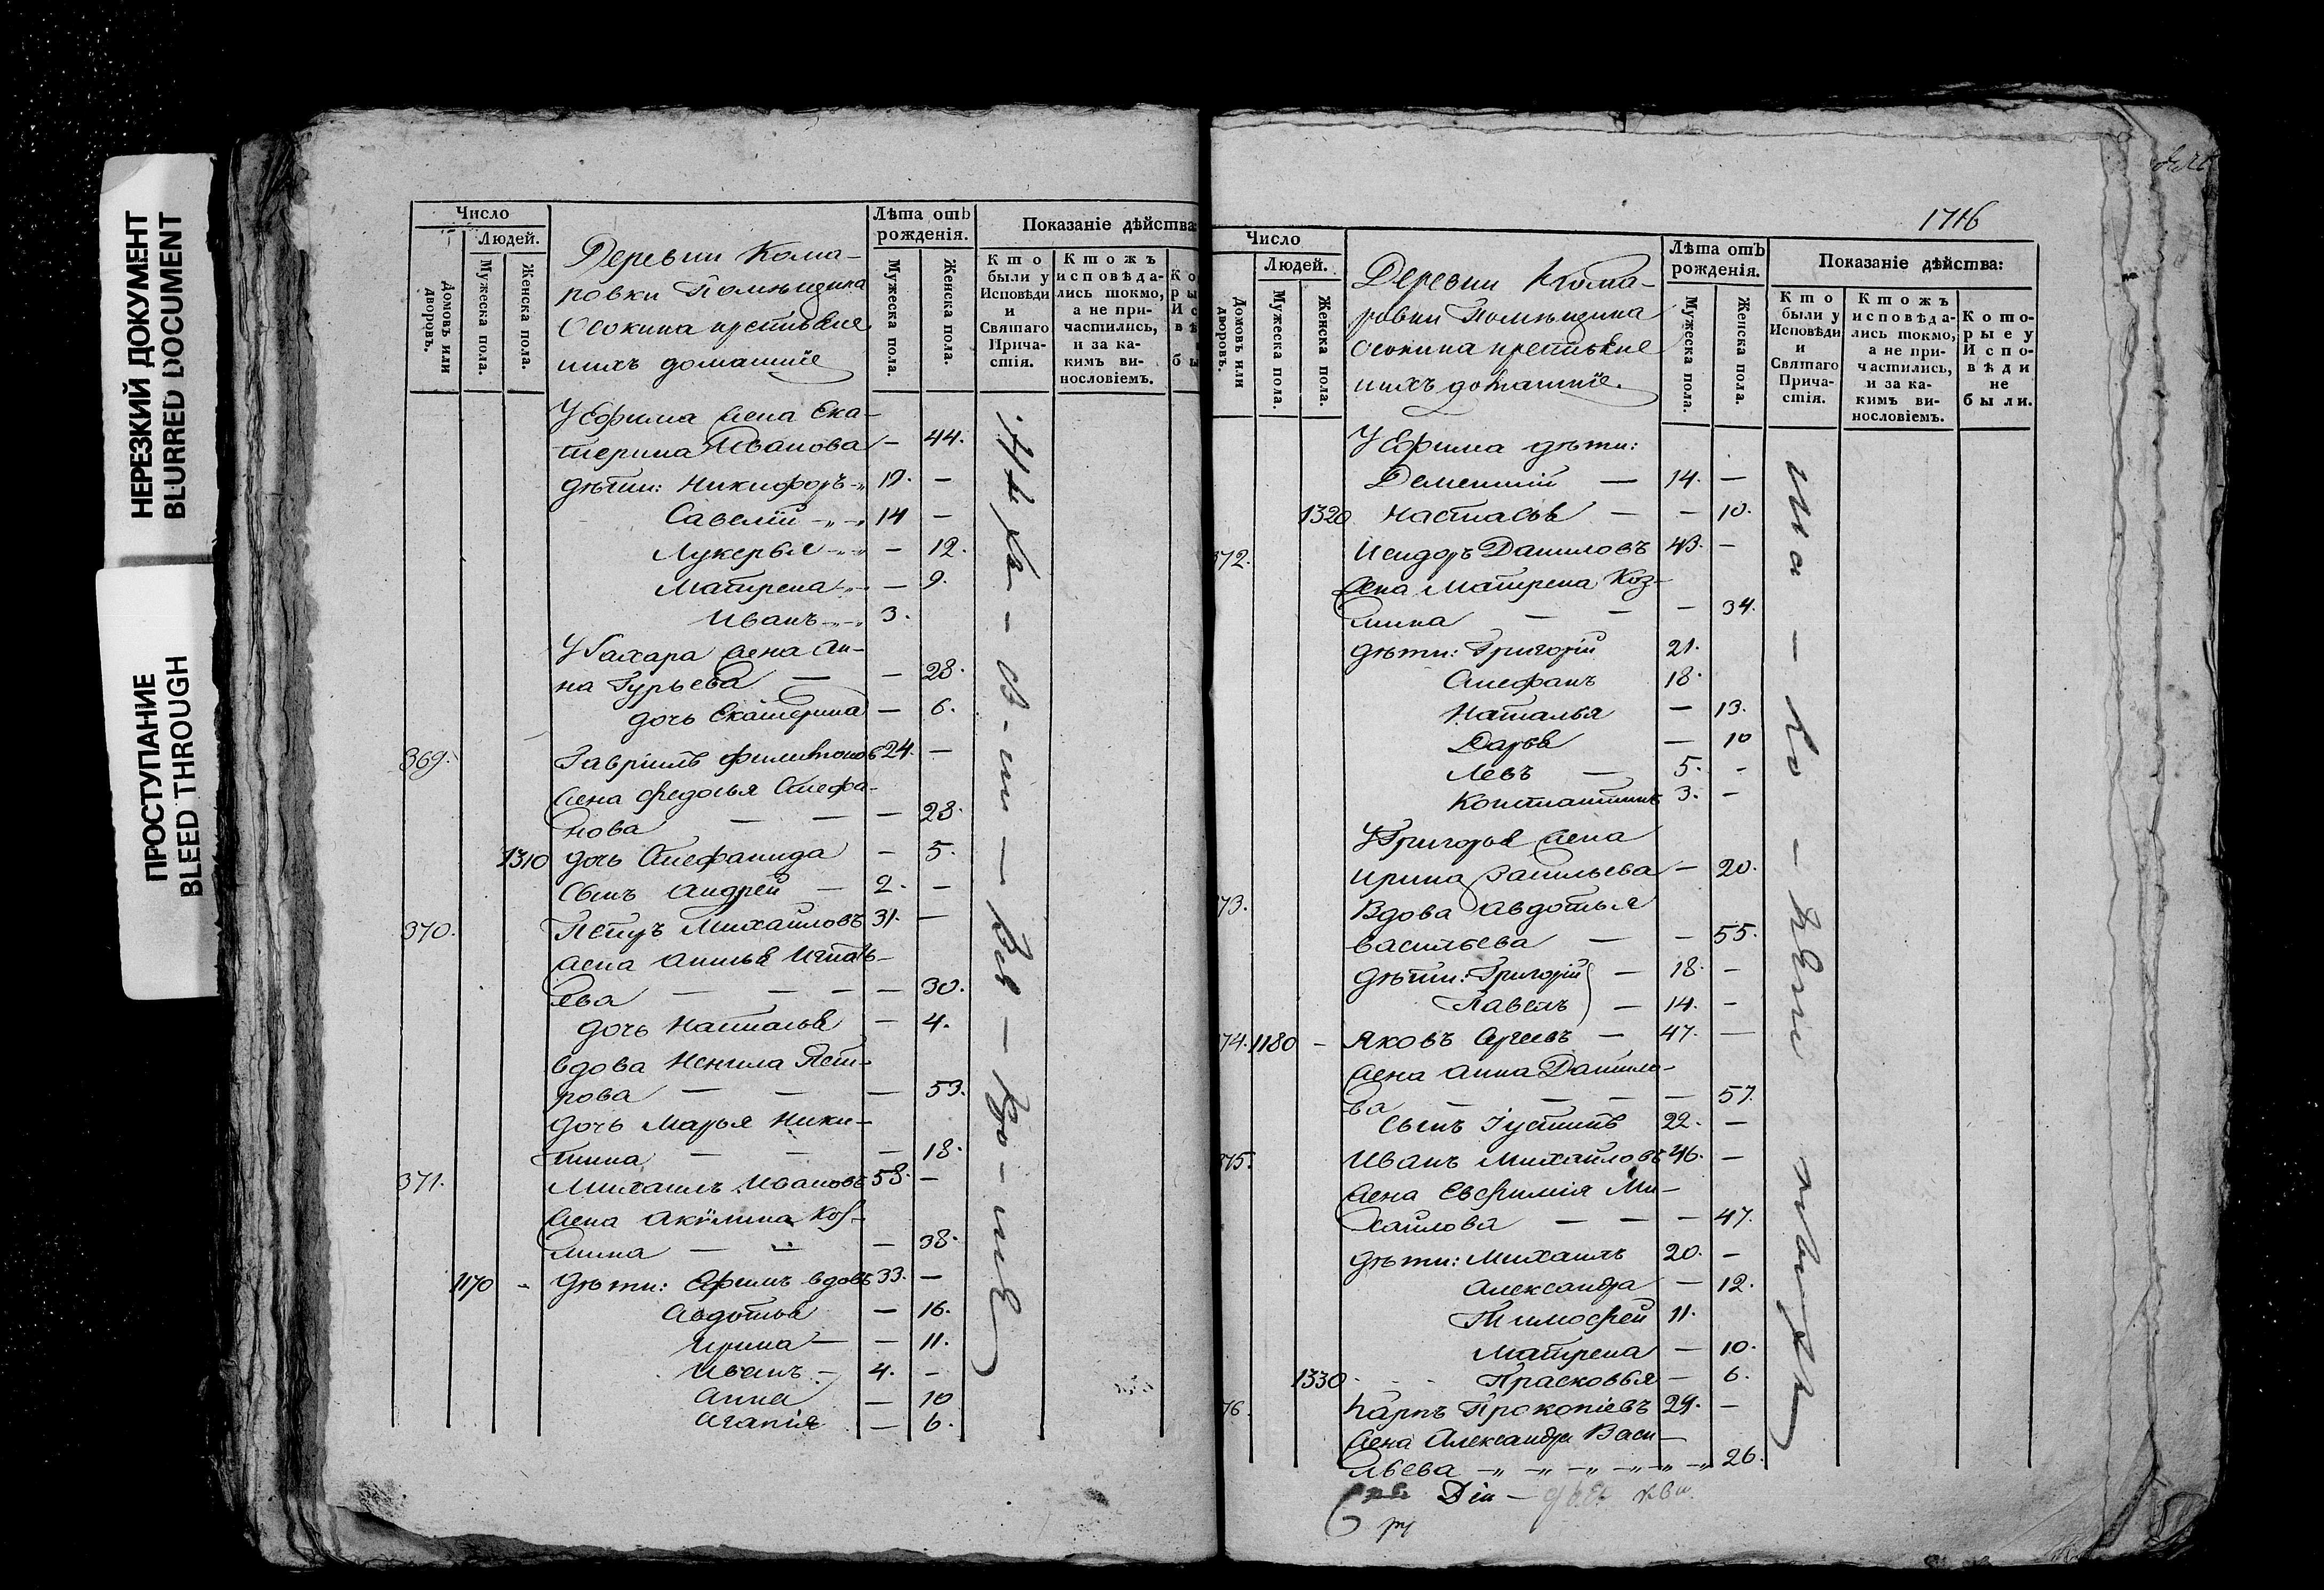 НЕРЕЗКИЙ ДОКУМЕНТ
BLURRED DOCUMENT
ПРОСТУПАНИЕ
BLEED THROUGH
Число
Людей.
Домовъ или дворовъ.
Мужеска пола.
Женска пола.
Деревни Кома-
ровки Помѣщика
Осокина крестьяне
ихъ домашніе
Лѣта отъ
рожденія.
Мужеска пола.
Женска пола.
Показаніе дѣйства
Кто
были у
Исповѣди
и
Святаго
Прича-
стія.
Ктожъ
исповѣда-
лись токмо,
а не при-
частились,
и за ка-
кимъ ви-
нословіемъ.
У Ефима жена Ека-
терина Иванова – 44.
дѣти: Никифоръ 19. –
Савелій 14 –
Лукерья – 12.
Матрена – 9.
Иванъ 3.
У Захара жена Ан-
на Гурьева – – 28.
дочь Екатерина – 6.
369. Гавріилъ Филимоновъ 24. –
жена Федосья Стефа-
нова – – – 23.
1310 дочь Стефанида – 5.
сынъ Андрей – 2. –
370. Петръ Михайловъ 31. –
жена Анисья Игнать-
ева – – – – 30.
дочь Наталья – 4.
вдова Ненила Пет-
рова – – – 53.
дочь Марья Ники-
тина – – – 18.
371. Михаилъ Ивановъ 58. –
жена Акулина Коз-
мина – – – 38.
1170 – дѣти: Ефимъ вдовъ 33. –
Авдотья – 16.
Ирина – – 11.
Иванъ – 4. –
Анна – 10
Агапія – 6.
1716
Число
Людей.
Домовъ или дворовъ.
Мужеска пола.
Женска пола.
Деревни Кома-
ровки Помѣщика
Осокина крестьяне
ихъ домашніе.
Лѣта отъ
рожденія.
Мужеска пола.
Женска пола.
Показаніе дѣйства:
Кто
были у
Исповѣди
и
Святаго
Прича-
стія.
Ктожъ
исповѣда-
лись токмо,
а не при-
частились,
и за ка-
кимъ ви-
нословіемъ.
Кото-
рые у
Испо-
вѣди
не
были.
У Ефима дѣти:
Дементій – 14. –
1320 Настасья – – 10.
372. Исидоръ Даниловъ 43. –
жена Матрена Коз-
мина – – – 34.
дѣти: Григорій 21.
Стефанъ 18.
Наталья – 13.
Дарья – 10
Левъ – 5. –
Константинъ 3. –
У Григорья жена
Ирина Васильева – 20.
73. Вдова Авдотья
Васильева – – 55.
дѣти: Григорій – 18. –
Павелъ – 14. –
74. 1180 – Яковъ Сергеевъ – 47. –
жена Анна Данило-
ва – – – – 57.
сынъ Іустинъ 22. –
375. Иванъ Михайловъ 46. –
жена Евфимія Ми-
хайлова – – – 47.
дѣти: Михаилъ 20. –
Александра – 12.
Тимофей 11.
Матрена – 10.
1330 Прасковья – 6.
76. Карпъ Прокопіевъ 29. –
жена Александра Васи-
льева 26.